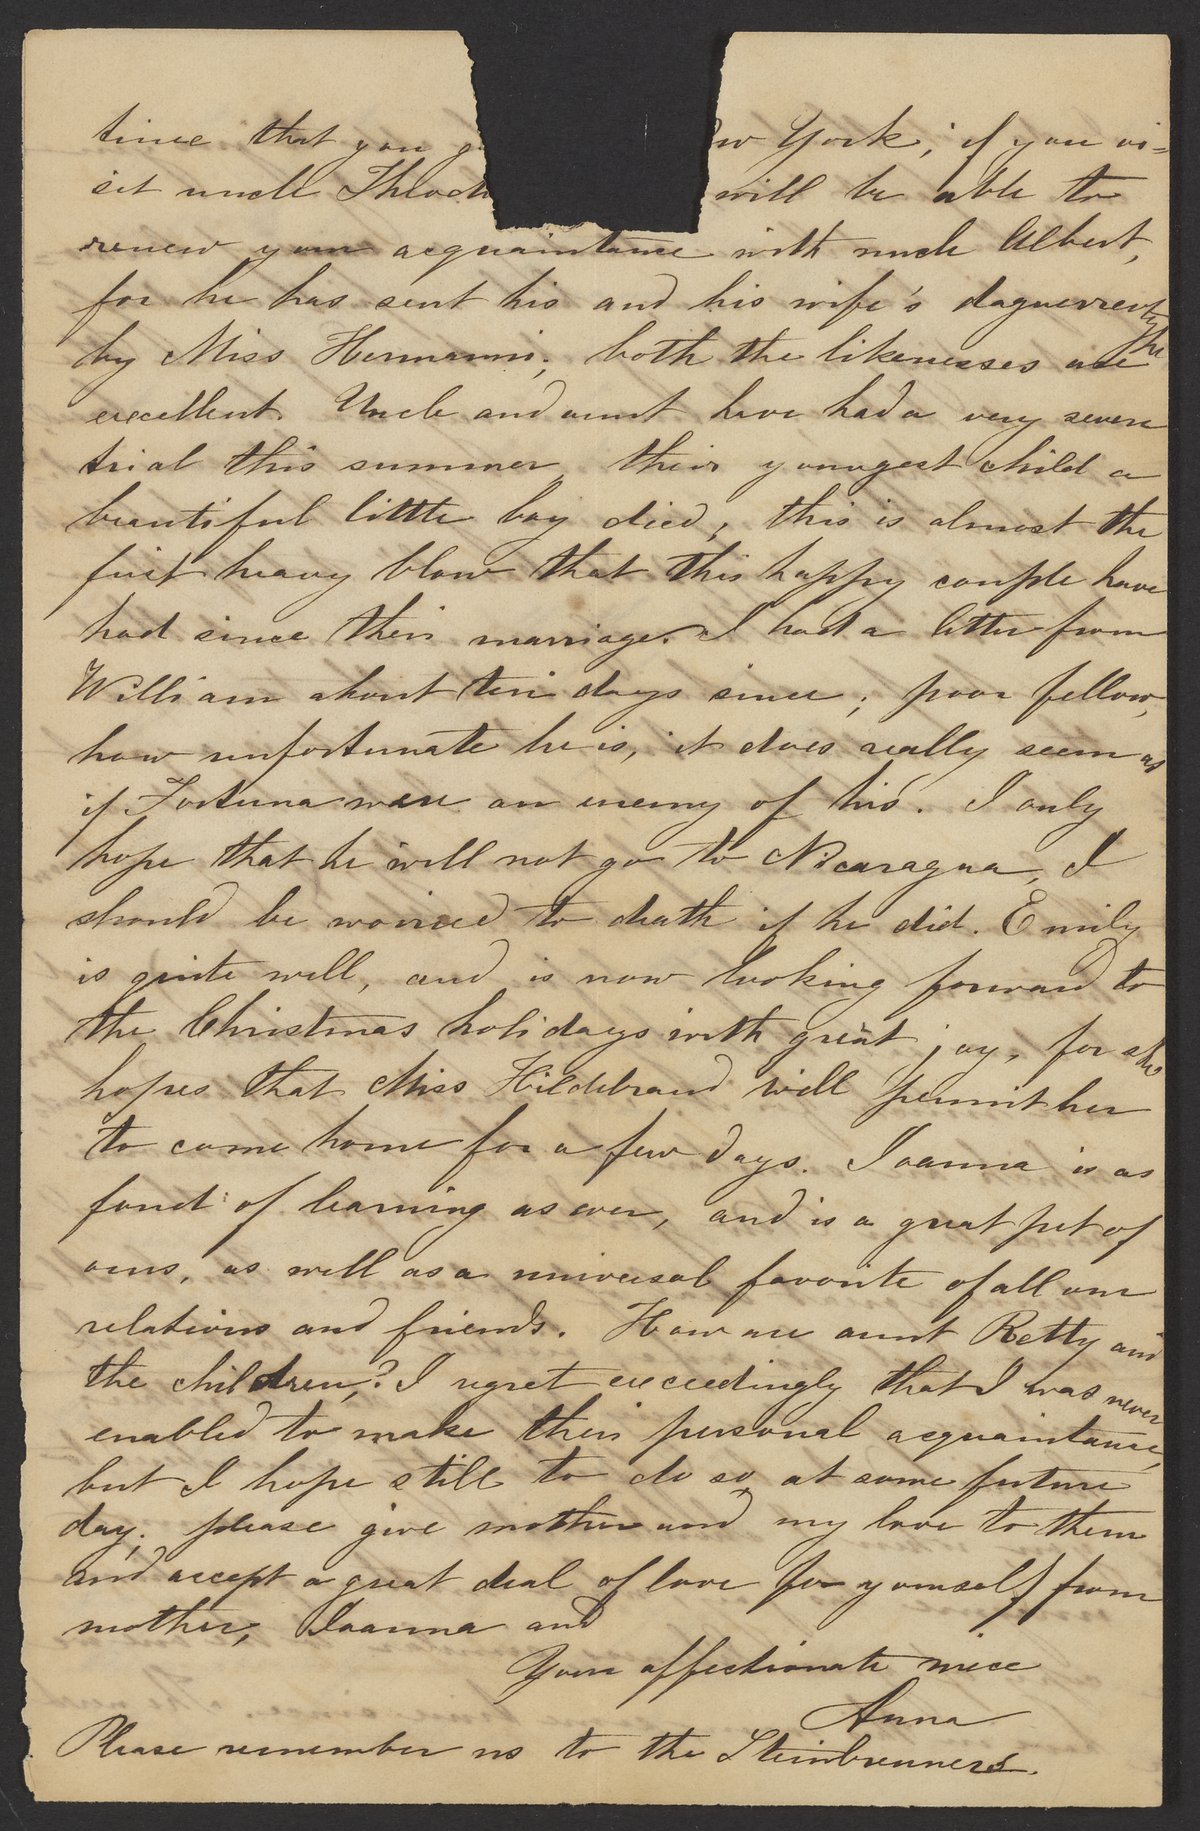 time that you w York; if you vi=
sit uncle will be able to
renew your acquaintance with uncle Albert,
for he has sent his and his wife's daguerreotype
by Miss Hermanni; both the likenesses are
excellent. Uncle and aunt have had a very severe
trial this summer, their youngest child a
beautiful little boy died; this is almost the
first heavy blow that this happy couple have
had since their marriage. I had a letter from
William about ten days since; poor fellow,
how unfortunate he is, it does really seem as
if Fortuna were an enemy of his. I only
hope that he will not go to Nicaragua, I
should be worried to death if he did. Emily
is quite well, and is now looking forward to
the Christmas holidays with great joy, for she
hopes that Miss Hildebrand will permit her
to come home for a few days. Joanna is as
fond of learning as ever, and is a great pet of
ours, as well as a universal favorite of all our
relations and friends. How are aunt Retty and
the children? I regret exceedingly that I was never
enabled to make their personal acquaintance,
but I hope still to do so at some future
day; please give mother and my love to them
and accept a great deal of love for yourself from
mother, Joanna and
Your affectionate niece
Anna
Please remember us to the Steinbrenners.